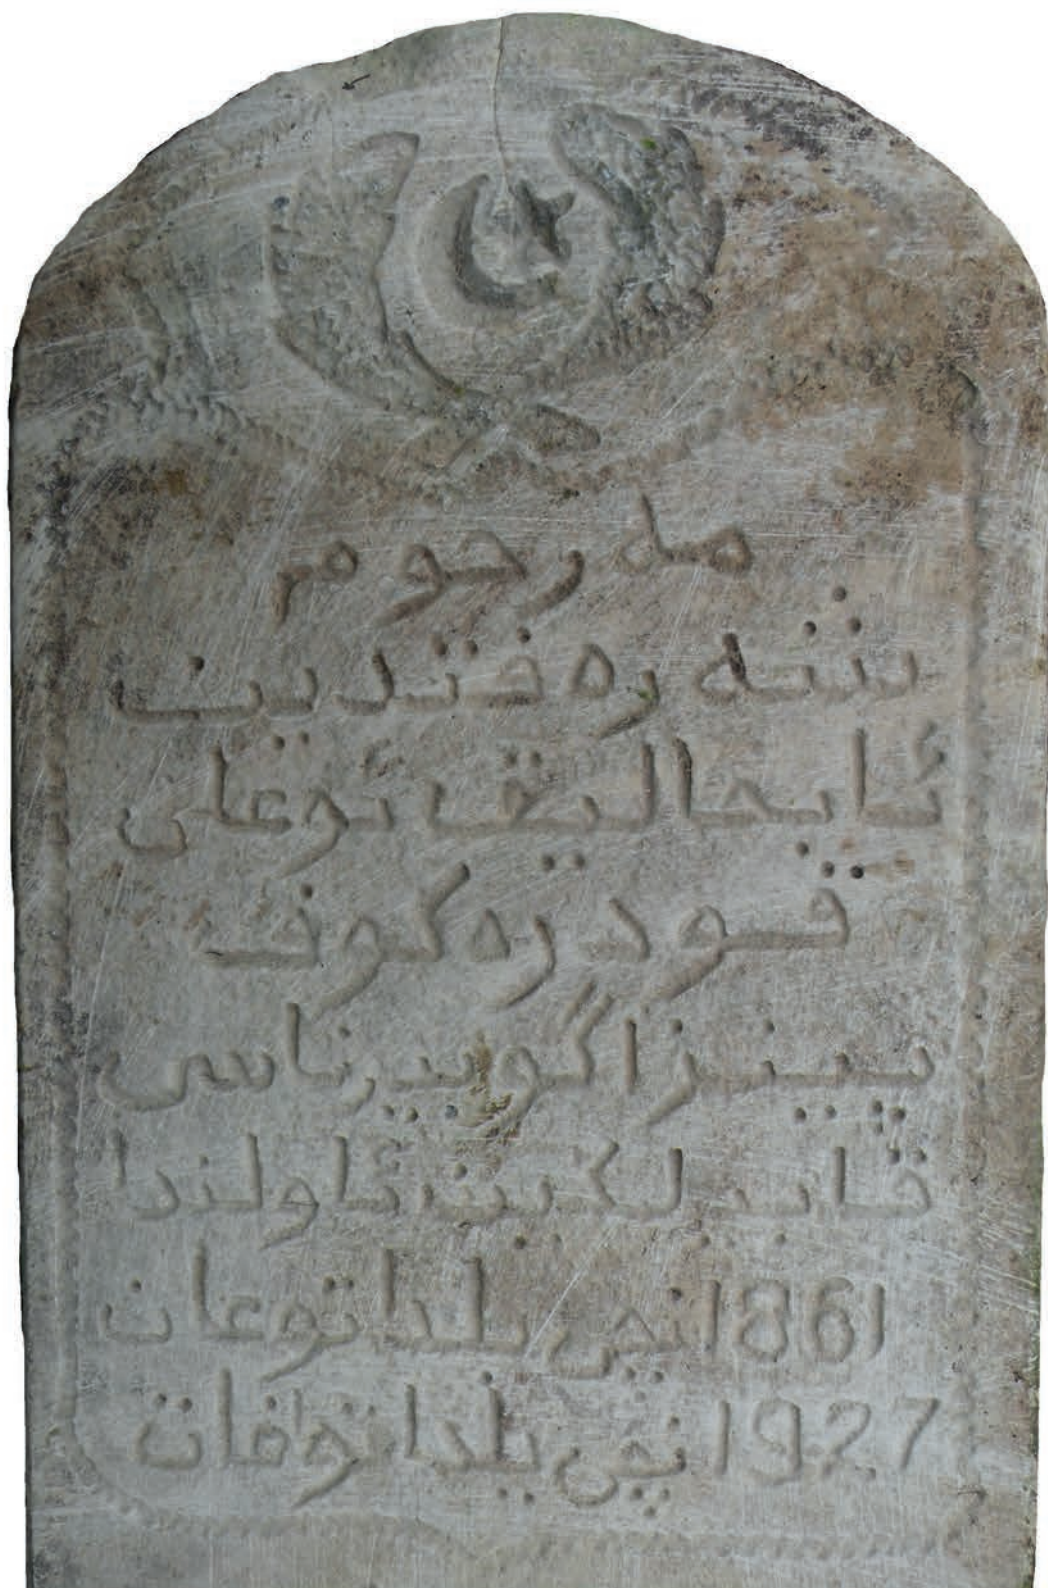 مەرحوم
شەرەفتدین
ئابحالیق ئوعلی
قودرەکوف
پینزا گوبیرناسی
قاندلکین ئاولندا
1861 نچی یلدا توعان
1927 نچی یلدا وافات